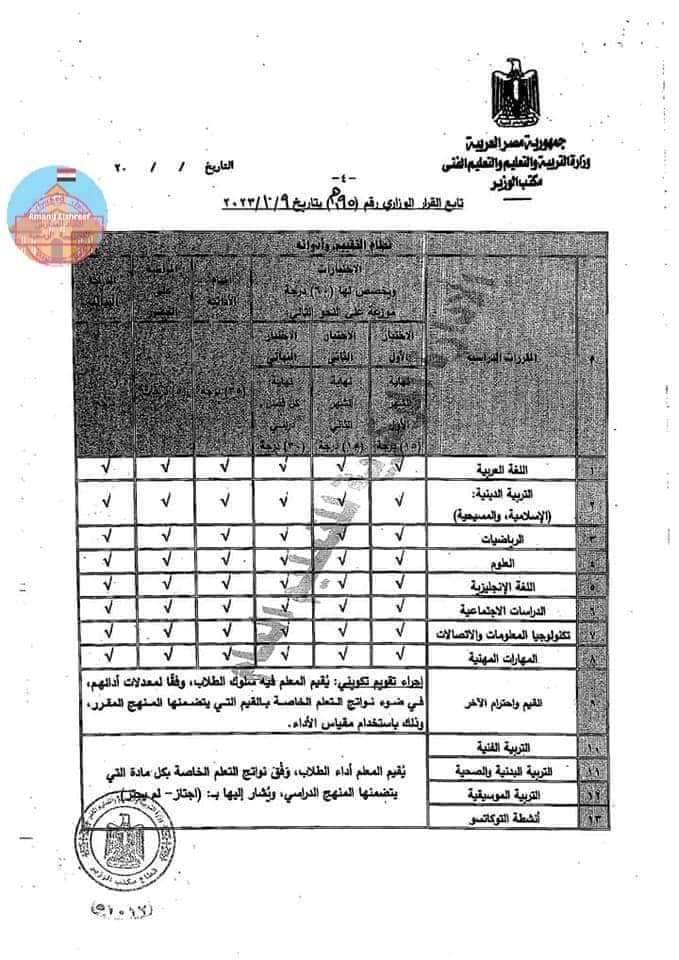 جمهورية مصر العربية
وزارة التربية والتعليم والتعليم الفنى
مكتب الوزير
التاريخ / / ٢٠
-٤-
تابع القرار الوزاري رقم ( ) بتاريخ ٢٠٢٣/١٠/٩
Amany Elshreef
نظام التقييم وأدواته
م
المقررات الدراسية
الاختبارات
ويخصص لها (٦٠) درجة
موزعة على النحو التالي
الاختبار الأول
نهاية الشهر الأول
(١٥) درجة
الاختبار الثاني
نهاية الشهر الثاني
(١٥) درجة
الاختبار النهائي
نهاية كل فصل دراسي
(٣٠) درجة
(٣٥) درجة
١ اللغة العربية √ √ √ √ √ √
٢ التربية الدينية: √ √ √ √ √ √
(الإسلامية، والمسيحية)
٣ الرياضيات √ √ √ √ √ √
٤ العلوم √ √ √ √ √ √
٥ اللغة الإنجليزية √ √ √ √ √ √
٦ الدراسات الاجتماعية √ √ √ √ √ √
٧ تكنولوجيا المعلومات والاتصالات √ √ √ √ √ √
٨ المهارات المهنية √ √ √ √ √ √
٩ القيم واحترام الآخر
إجراء تقويم تكويني: يُقيم المعلم فيه سلوك الطلاب، وفقًا لمعدلات أدائهم،
في ضوء نواتج التعلم الخاصة بالقيم التي يتضمنها المنهج المقرر،
وذلك باستخدام مقياس الأداء.
١٠ التربية الفنية
١١ التربية البدنية والصحية
١٢ التربية الموسيقية
١٣ أنشطة التوكاتسو
يُقيم المعلم أداء الطلاب، وَفْق نواتج التعلم الخاصة بكل مادة التي
يتضمنها المنهج الدراسي، ويُشار إليها بـ: (اجتاز- لم يجتز).
قطاع مكتب الوزير